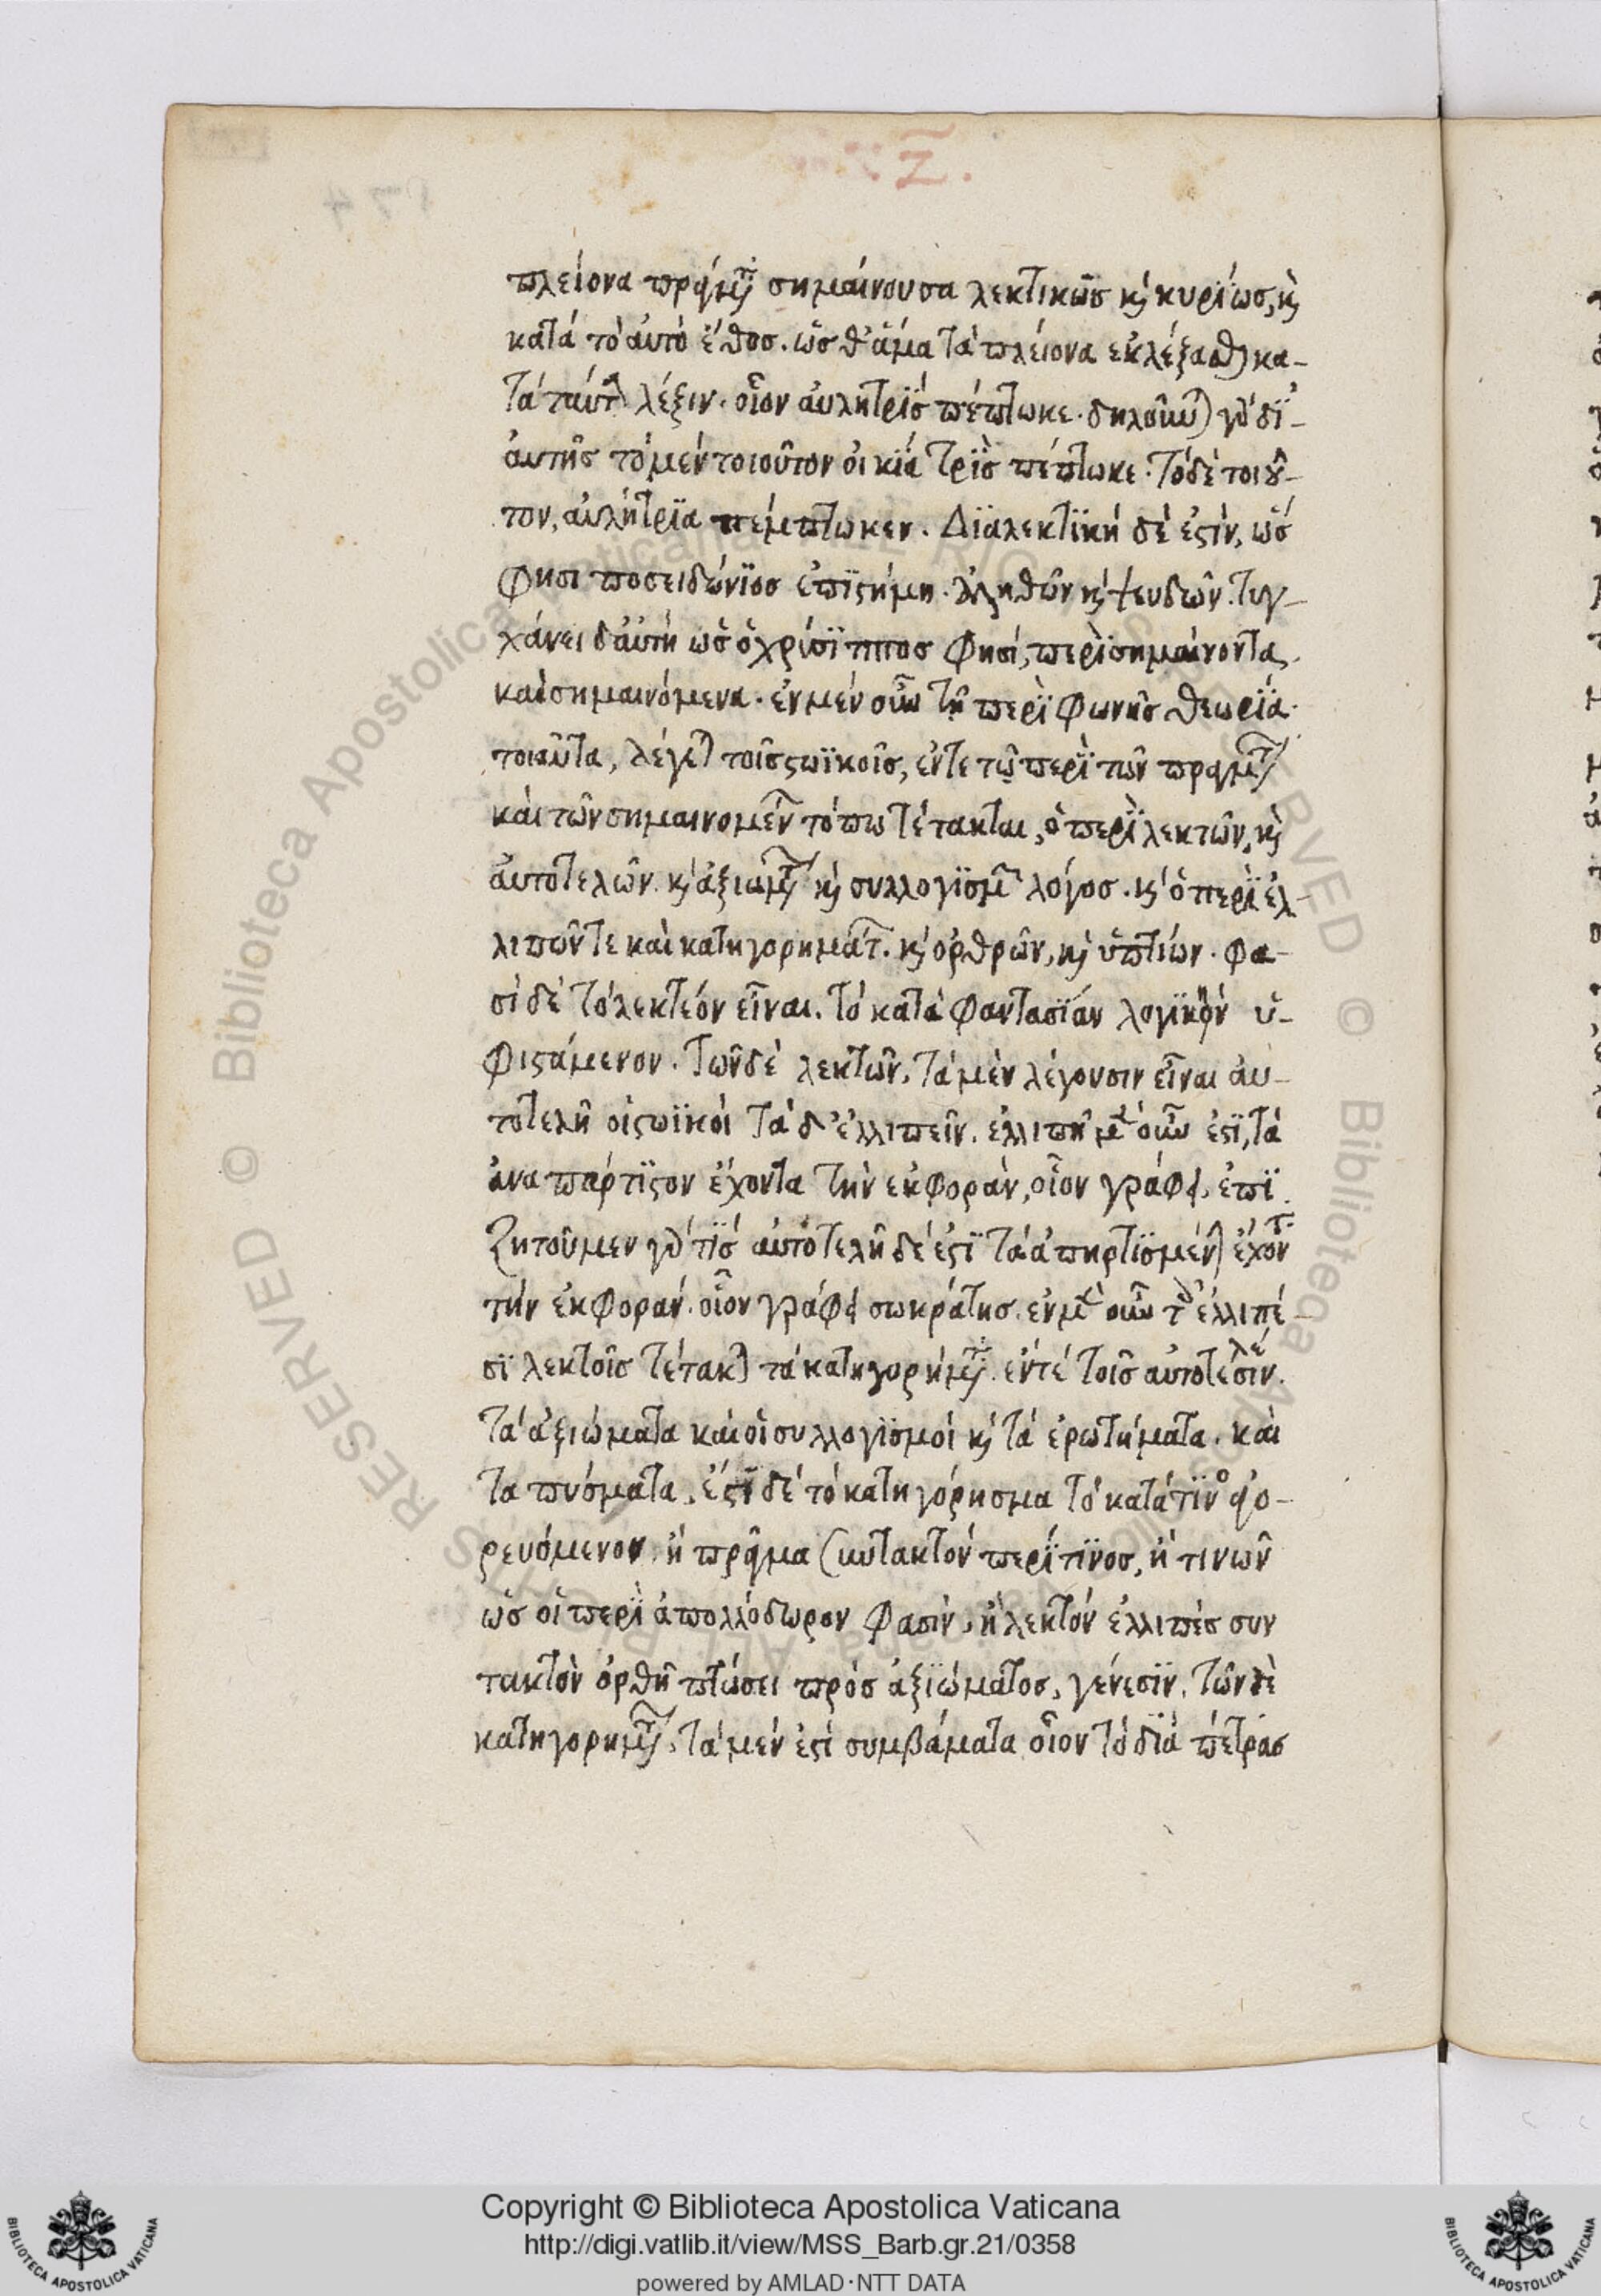 .Ζ.
πλείονα πράγματα σημαίνουσα λεκτικῶς καὶ κυρίως, καὶ
κατά τὸ αὐτὸ ἔθος. ὥς θ' ἅμα τὰ πλείονα ἐκλέξασθαι κα-
τά ταύτην λέξιν. οἷον ἀυλητρὶς πέπτωκε. δηλοῦνται γὰρ δϊ'
ἀυτῆς τὸ μέν τοιοῦτον ὀικία τρὶς πέπτωκε. τὸ δὲ τοιοῦ-
τον, ἀυλήτρϊα πέμπτωκεν. Δϊαλεκτϊκή δέ ἐστὶν, ὥς
φησι ποσειδώνϊος ἐπϊστήμη ἀληθῶν καὶ ψευδῶν. τυγ-
χάνει δ' ἀυτὴ ὡς ὁ χρύσϊππος φησί, περὶ σημαίνοντας
καὶ σημαινόμενα. ἐν μέν οὖν τῇ περὶ φωνῆς θεωρϊά
τοιαῦτα, λέγεται τοῖς στωϊκοῖς, ἔντε τῷ περὶ τῶν πραγμάτων
καὶ τῶν σημαινομένων τόπω τέτακται, ὁ περὶ λεκτῶν, καὶ
ἀυτοτελῶν καὶ ἀξιωμάτων καὶ συλλογϊσμῶν λόγος. καὶ ὁ περὶ ἐλ-
λιπῶν τε καὶ κατηγορημάτων. καὶ ὀρθρῶν, καὶ ὑπτίων. φα-
σί δὲ τὸ λεκτέον εἶναι. τό κατὰ φαντασϊάν λογϊκὴν ὑ-
φιστάμενον. τῶν δὲ λεκτῶν, τὰ μὲν λέγουσιν εἶναι ἀυ-
τοτελῆ οἱ στωϊκοί τὰ δ' ἐλλιπεῖν. ἐλλιπῆ μὲν οὖν ἐστϊ, τά
ἀναπαρτϊστον ἔχοντα τὴν ἐκφοράν, οἷον γράφει, ἐπϊ
ζητοῦμεν γὰρ τίς ἀυτοτελῆ δέ ἐστϊ τὰ ἀπηρτϊσμένην ἔχοντα
τήν ἐκφοράν. οἷον γράφει σωκράτης. ἐν μὲν οὖν τοῖς ἐλλιπέ-
σϊ λεκτοῖς τέτακται τὰ κατηγορήματα. ἔν τέ τοῖς ἀυτοτελέσιν.
τὰ ἀξιώματα καὶ οἱ συλλογϊσμοί καὶ τά ἐρωτήματα. καὶ
τα πύσματα. ἔστϊ δέ τὸ κατηγόρησμα τὸ κατά τϊνος ἀγο-
ρευόμενον. ἢ πρᾶγμα (κυτακτόν περί τϊνος, ἢ τινῶν
ὡς οἱ περὶ ἀπολλόδωρον φασὶν, ἢ λεκτόν ἐλλιπὲς συν
τακτὸν ὀρθῇ πτώσει πρός ἀξϊώματος, γένεσϊν. τῶν δὲ
κατηγορημάτων, τὰ μέν ἐστὶ συμβάματα οἷον τὸ δϊά πέτρας
Copyright © Biblioteca Apostolica Vaticana
http://digi.vatlib.it/view/MSS_Barb.gr.21/0358
powered by AMLAD·NTT DATA